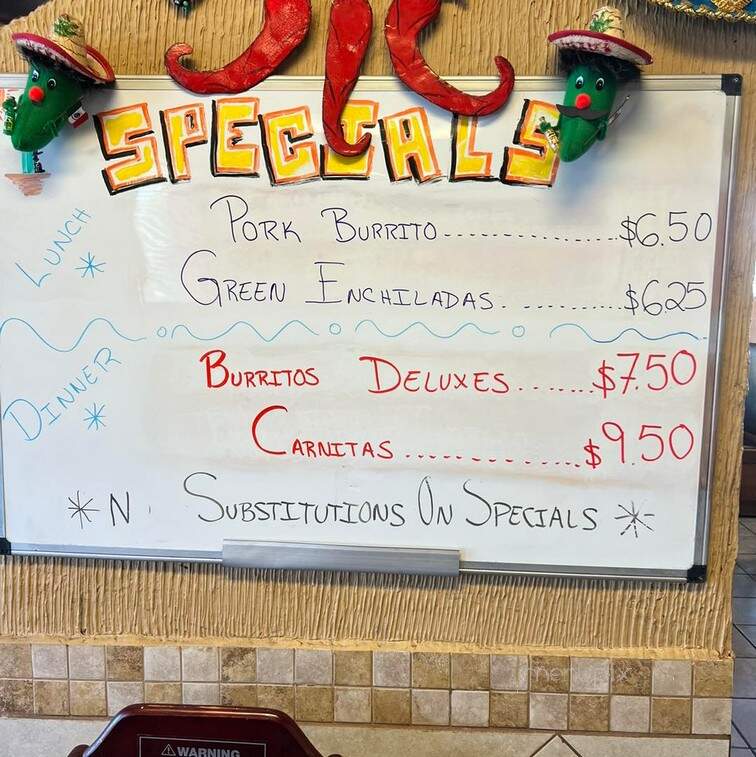 SPECIALS
LUNCH *
PORK BURRITO------------$6.50
GREEN ENCHILADAS. ..........$6.25
DINNER *
BURRITOS DELUXES.......$7.50
CARNITAS..............$9.50
* N SUBSTITUTIONS ON SPECIALS *
⚠WARNING